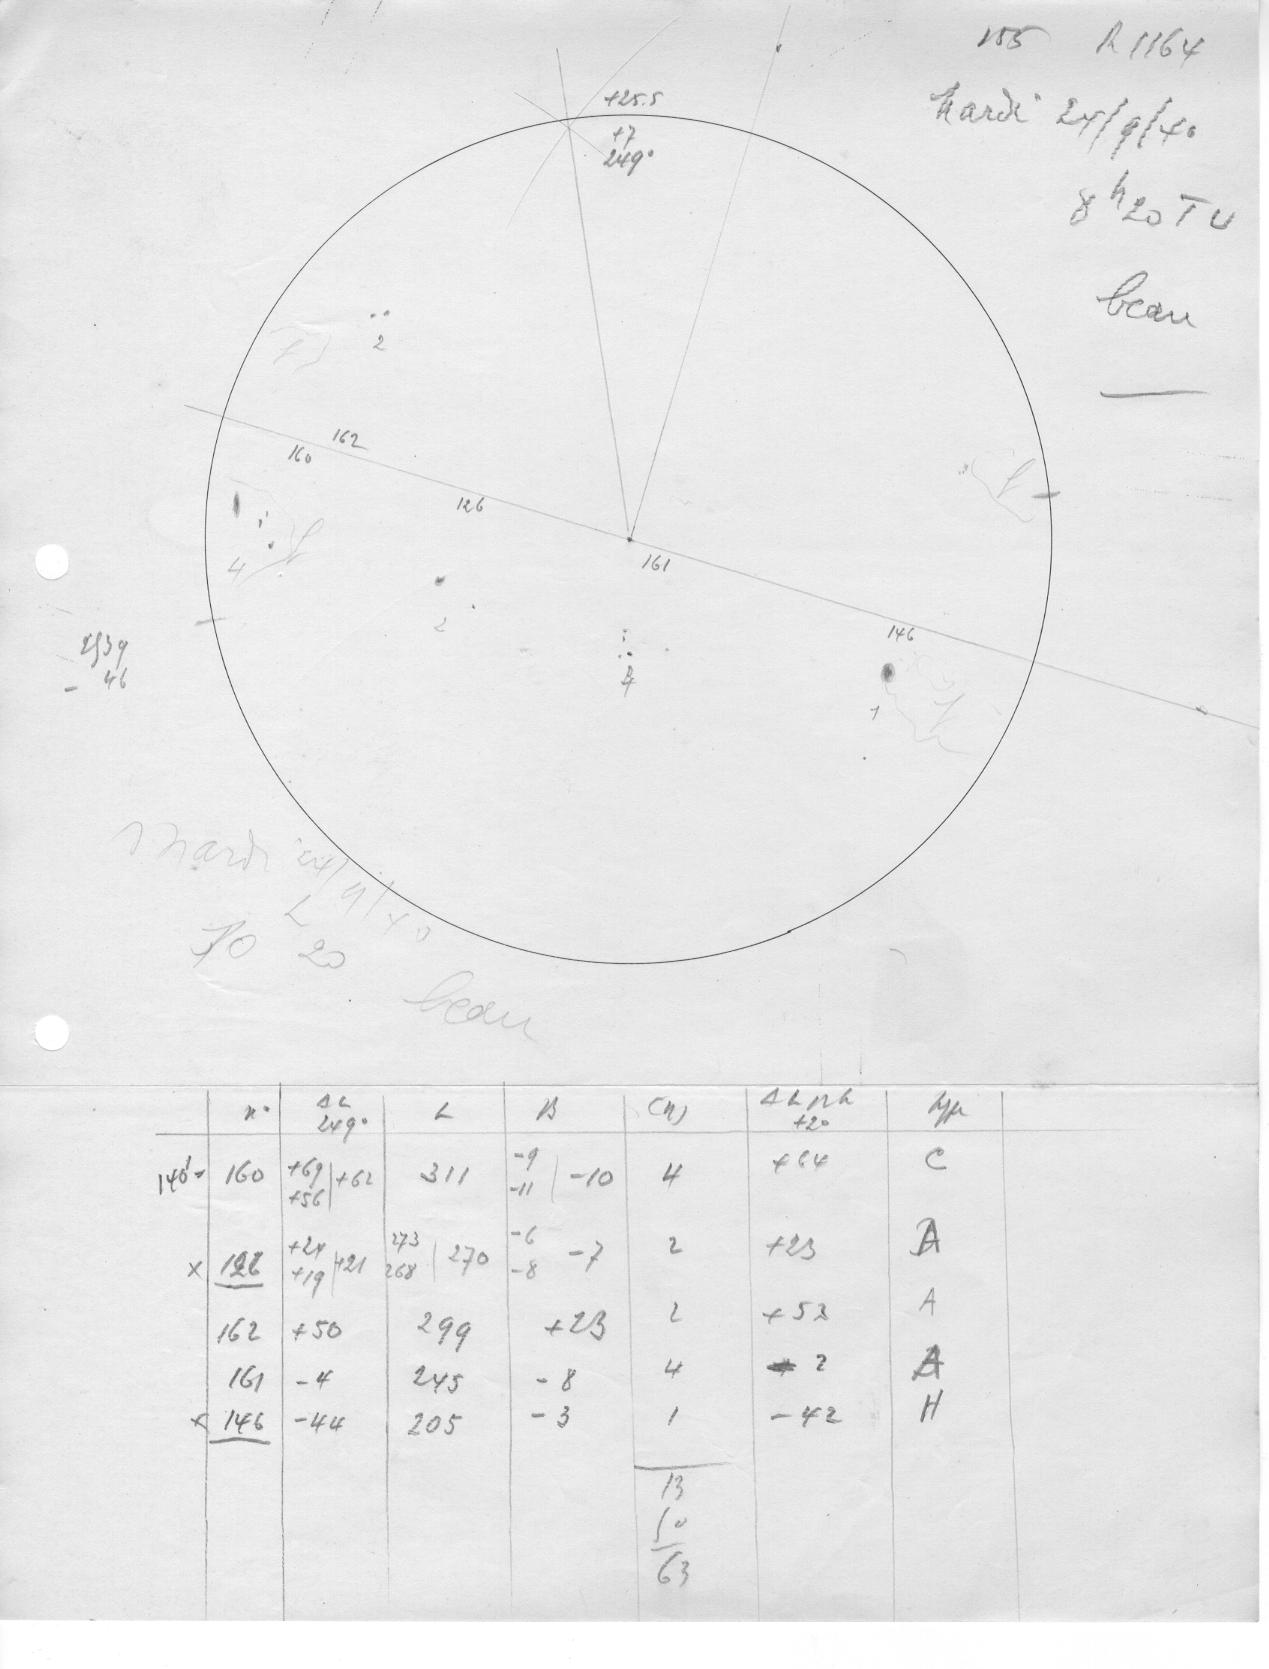 155 R1164
Mardi 24/9/40
8h20 TU
beau
+25.5
+7
249°
2
162
160
126
161
4
2
4
146
1
2539
- 46
Mardi 24/9/40
20
beau
n° ΔL 249° L B (n) +20 type
160 +69 +56 +62 311 -9 -11 -10 4 +64 C
x 126 +24 +19 +21 273 268 270 -6 -8 -7 2 +23 A
162 +50 299 +23 2 +52 A
161 -4 245 -8 4 2 A
x 146 -44 205 -3 1 -42 H
13
50
63